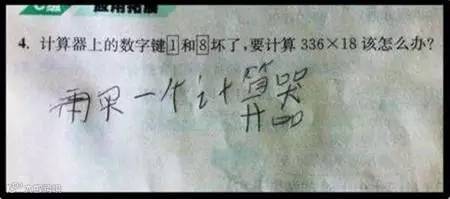 应用拓展
4. 计算器上的数字键1和8坏了,要计算336×18该怎么办?
再买一个计算器